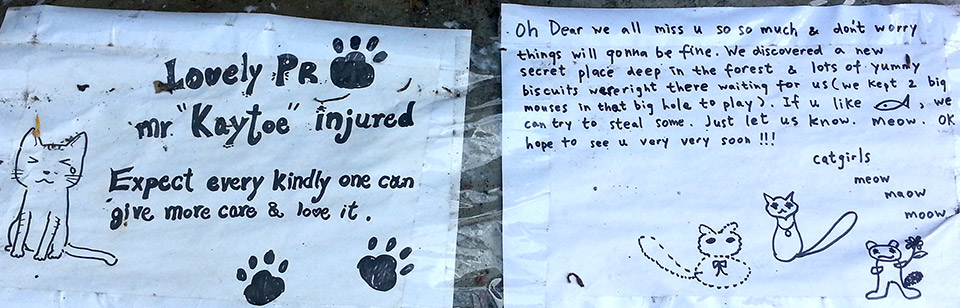 Lovely PR
mr "Kaytoe" injured
Expect every kindly one can
give more care & love it.
Oh Dear we all miss u so so much & don't worry
things will gonna be fine. We discovered a new
secret place deep in the forest & lots of yummy
biscuits were right there waiting for us (we kept 2 big
mouses in that big hole to play). If u like , we
can try to steal some. Just let us know. meow. OK
hope to see u very very soon !!!
catgirls
meow
maow
moow